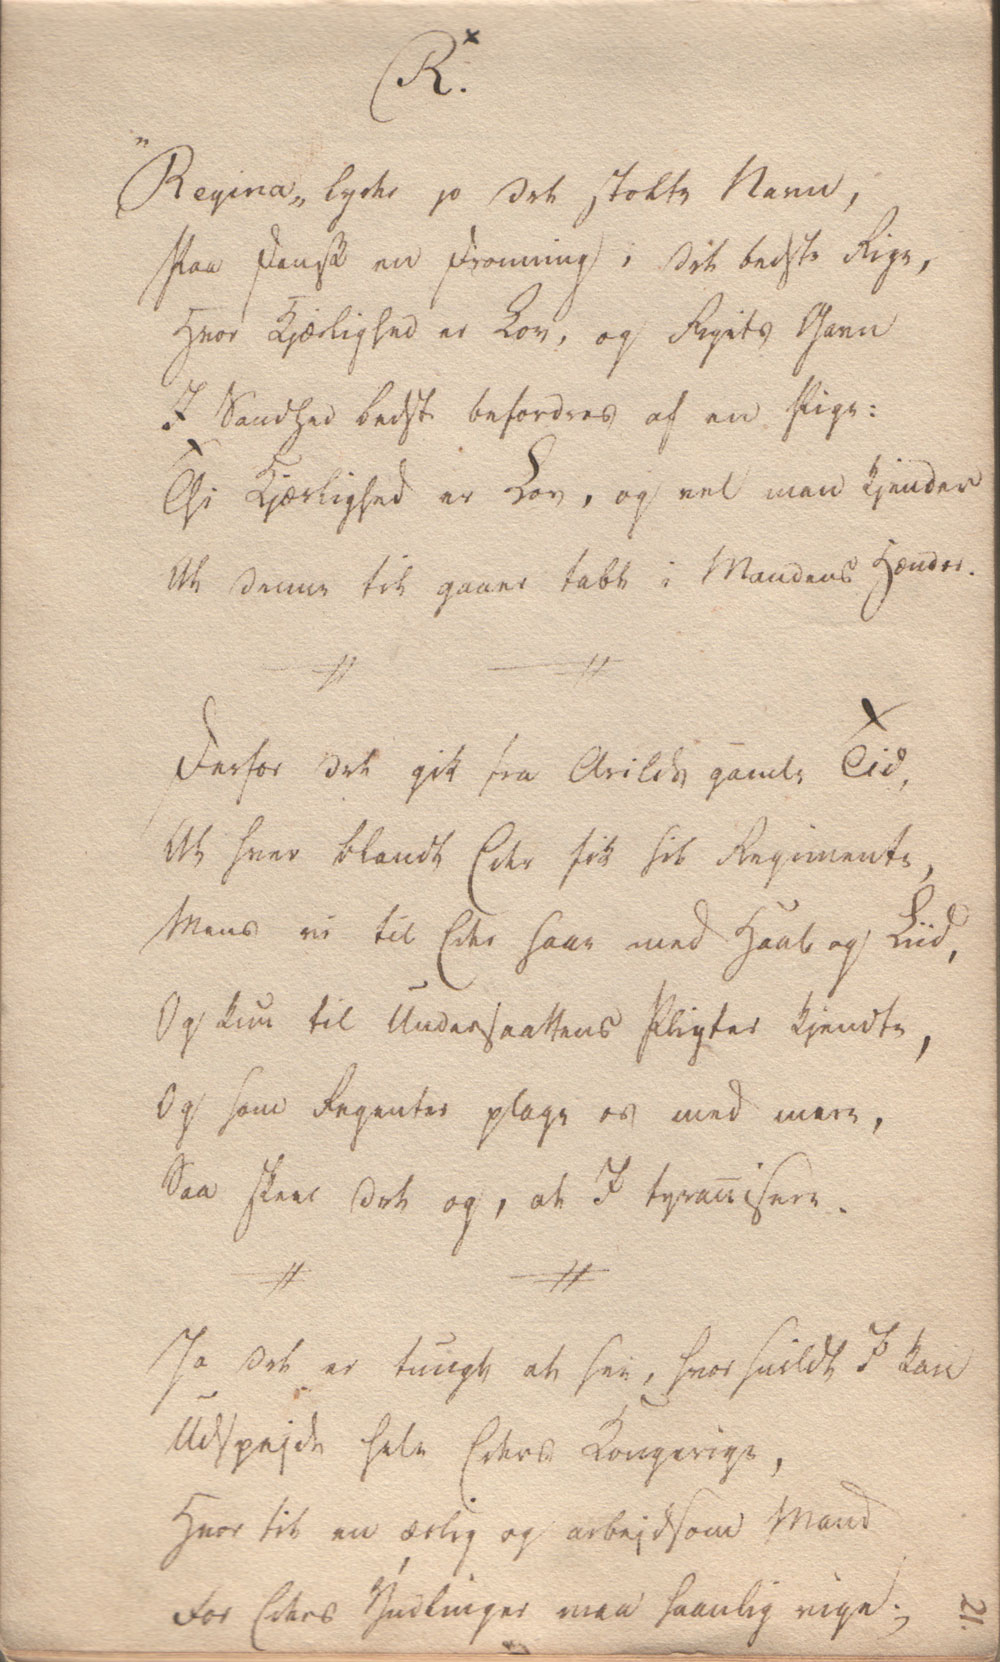 R.
"Regina" lyder jo det stolte Navn,
Paa Dansk en Dronning i det bedste Rige,
Hvor Kjærlighed er Lov, og Rigets Gavn
I Sandhed bedst befordres af en Pige:
Thi Kjærlighed er Lov, og vel man kjender
At denne tit gaaer tabt i Mandens Hænder.
Derfor det gik fra Arilds gamle Tid,
At hver blandt Eder fik sit Regimente,
Mens vi til Eder saae med Haab og Liid,
Og kun til Undersaattens Pligter kjendte,
Og som Regenter plage os med mere,
Saa skeer det og, at I tyrannisere.
Ja det er tungt at see, hvor snildt I kan
Udspejde hele Eders Kongerige,
Hvor tit en ærlig og arbejdsom Mand
For Eders Yndlinger maa haanlig vige;
21.